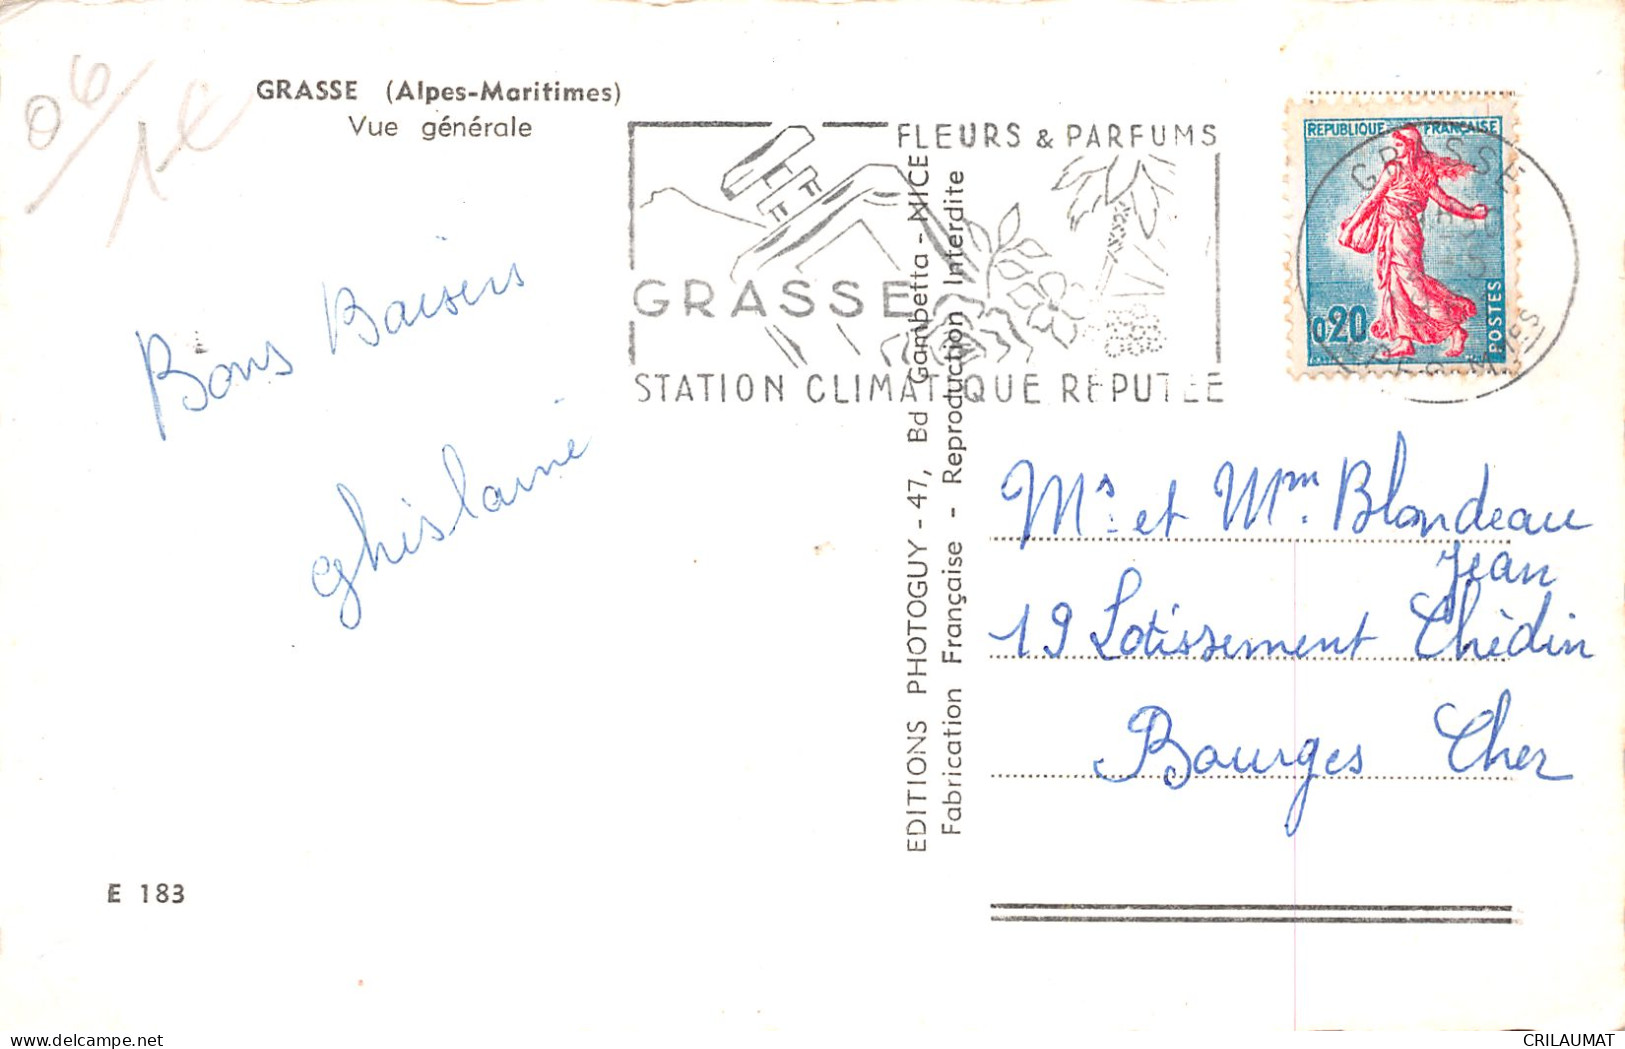 06
1€
GRASSE (Alpes-Maritimes)
Vue générale
FLEURS & PARFUMS
GRASSE
STATION CLIMATIQUE REPUTEE
REPUBLIQUE FRANÇAISE
0,20
POSTES
GRASSE
Bons Baisers
Ghislaine
EDITIONS PHOTOGUY - 47, Bd Gambetta - NICE
Fabrication Française - Reproduction Interdite
Mr et Mm. Blondeau
Jean
19 Lotissement Chédin
Bourges Cher
E 183
www.delcampe.net
CRILAUMAT